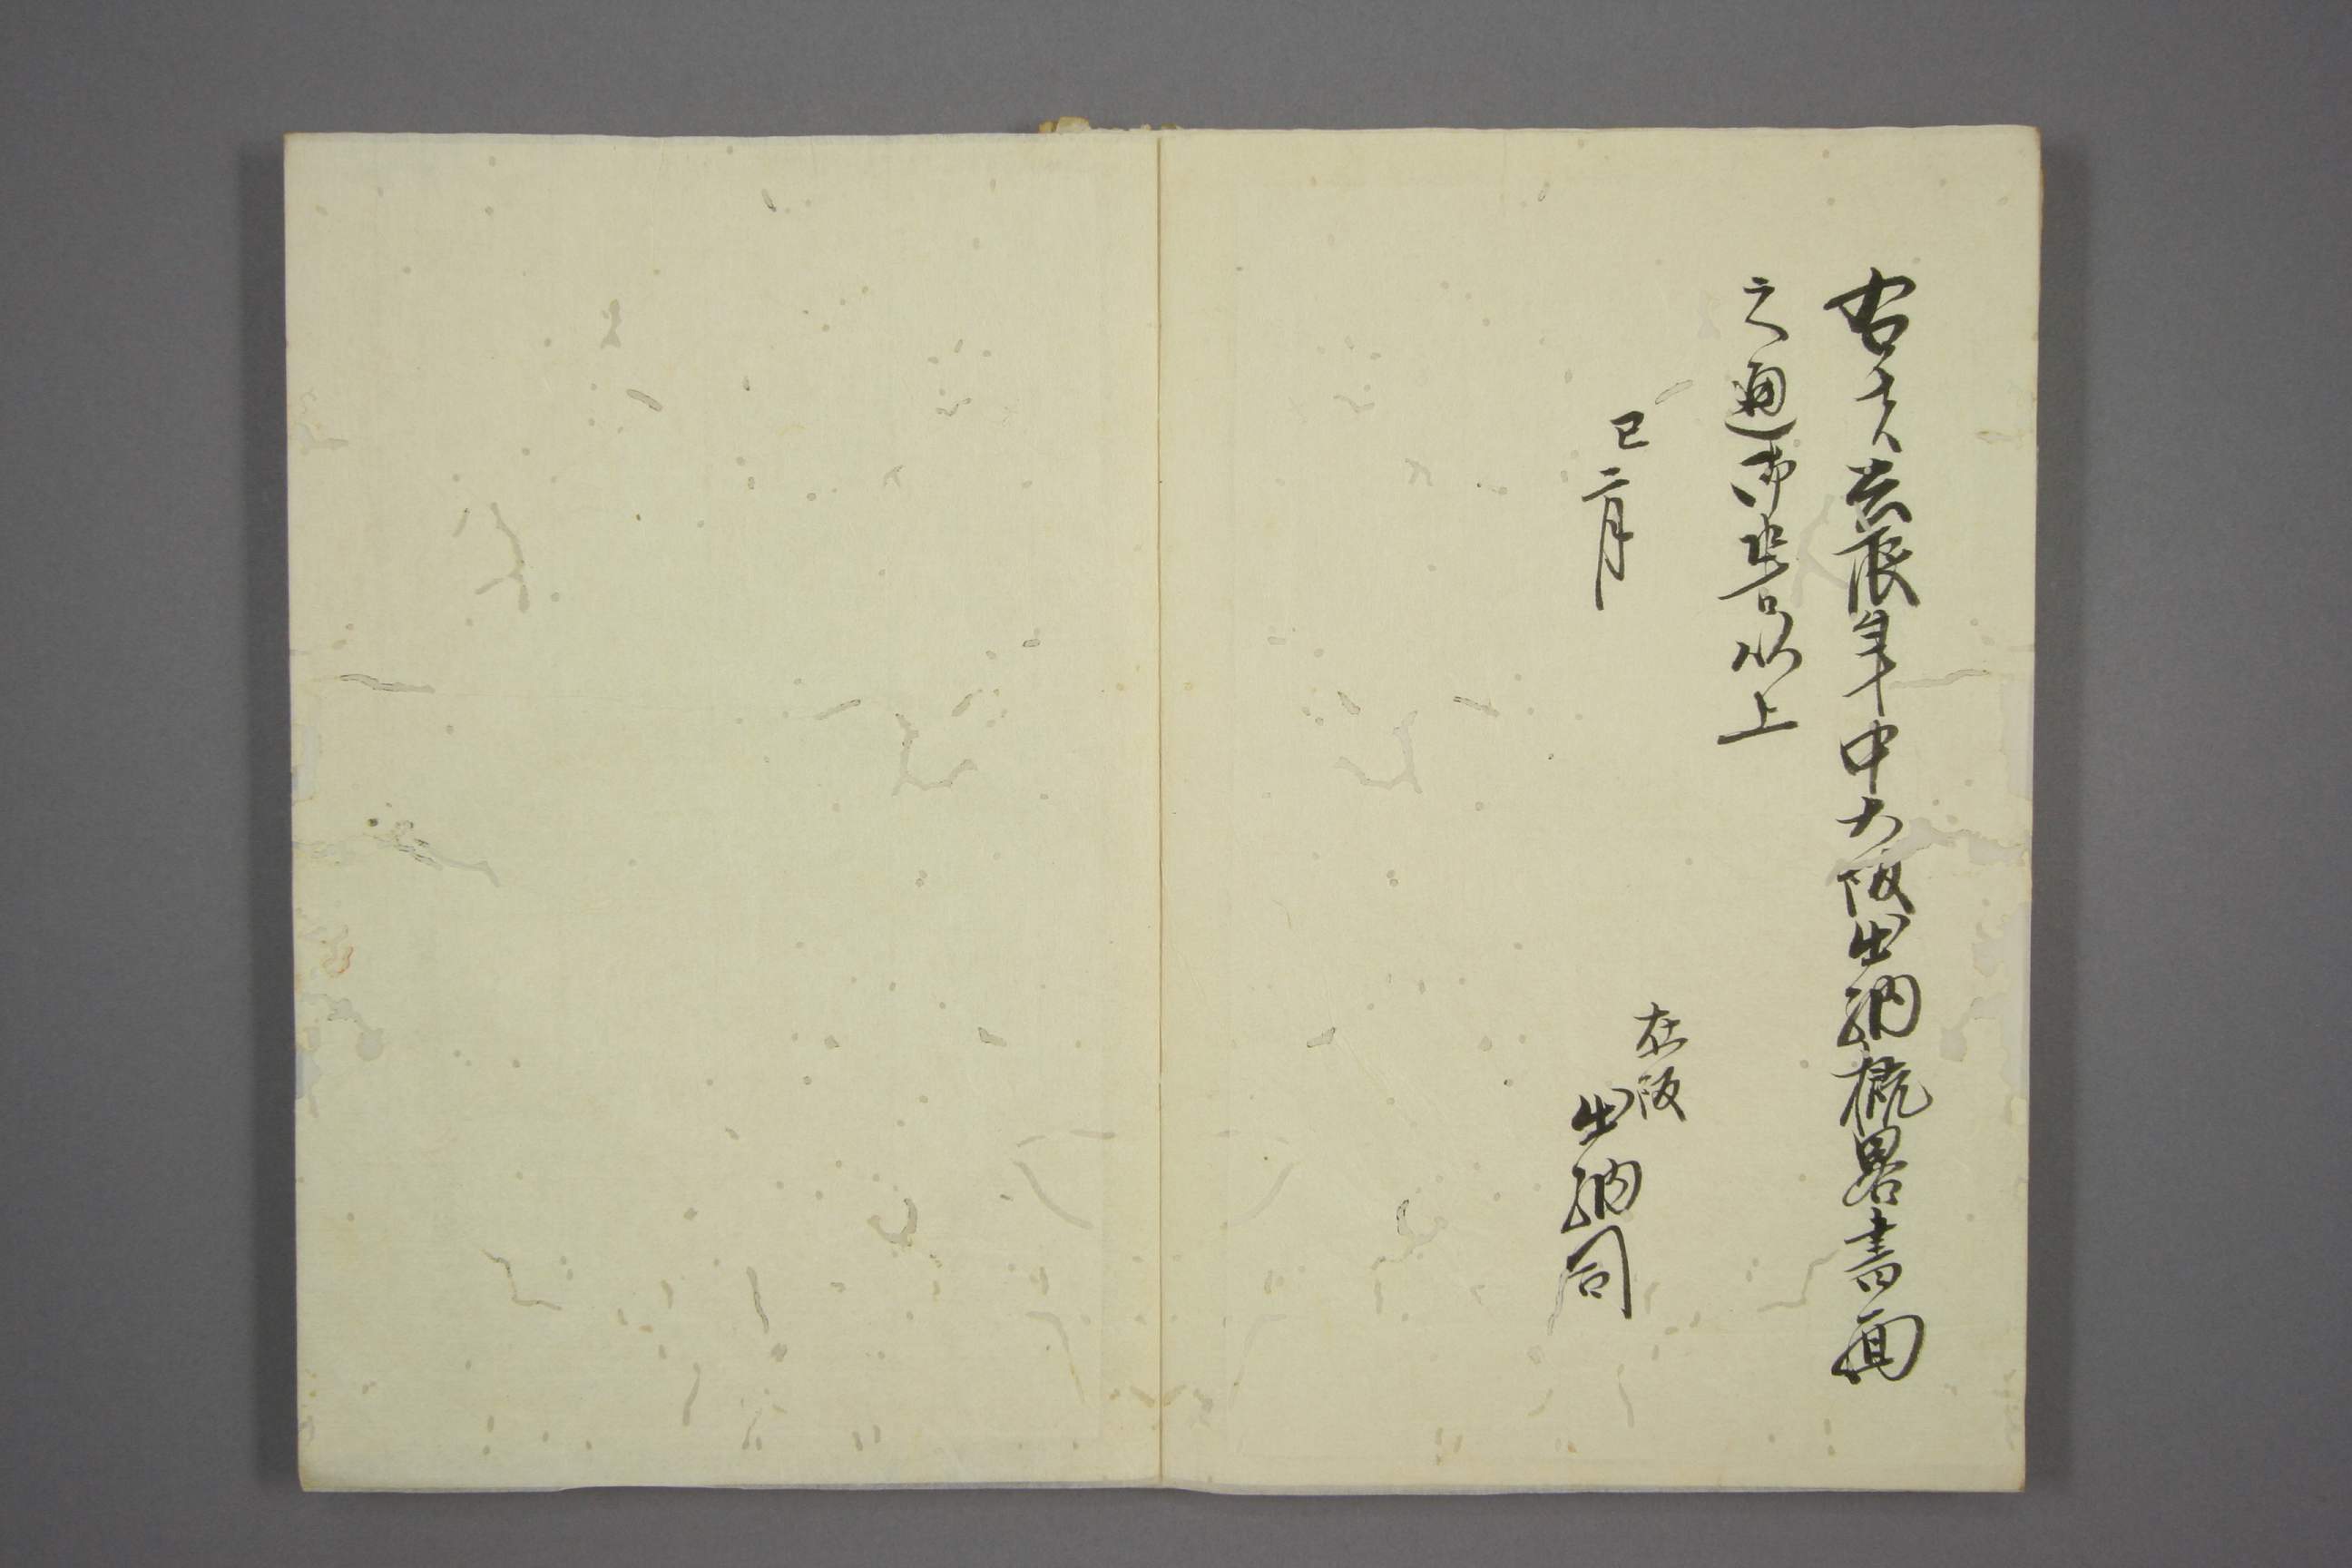 右者去辰年中大阪出納概畧書面
之通御座候以上
巳二月
在阪
出納司